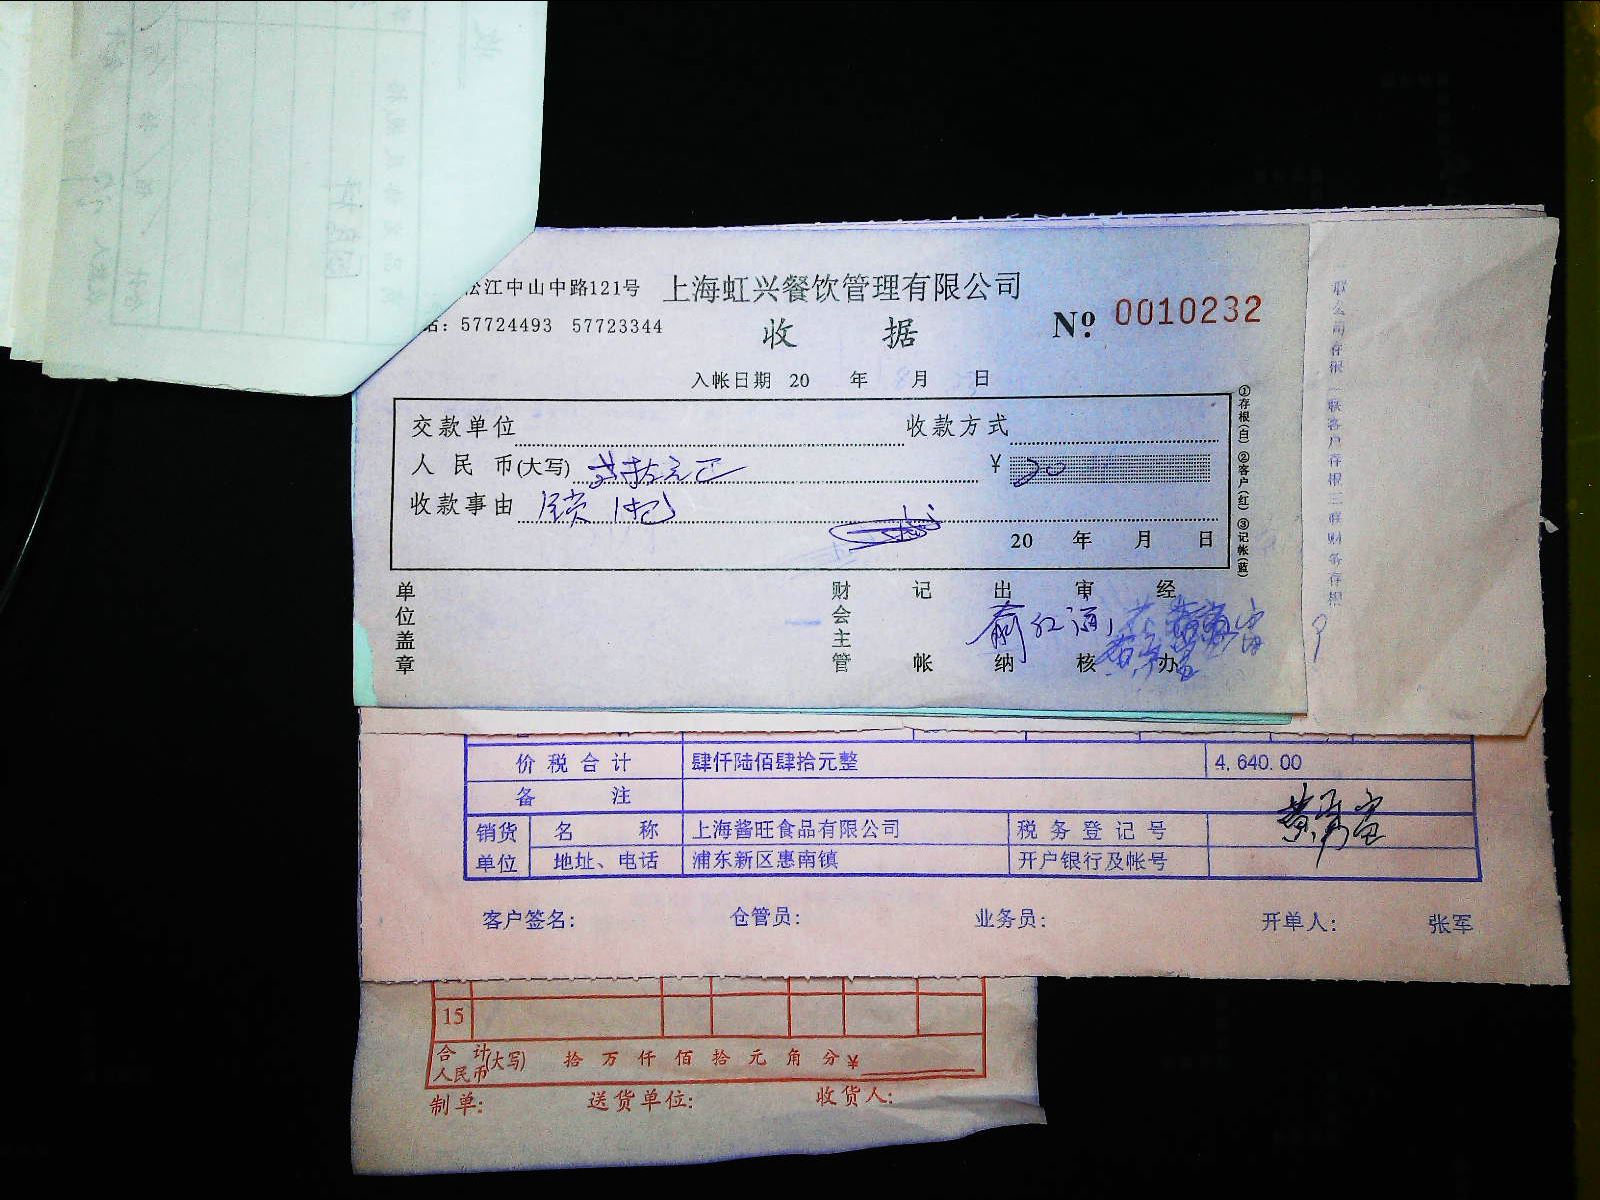 江中山中路121号 上海虹兴餐饮管理有限公司
：57724493 57723344 收 据 № 0010232
入帐日期 20 年 月 日
交款单位 收款方式
人民币(大写) 贰拾元正 ¥ 20
收款事由
20 年 月 日
①存根(白) ②客户(红) ③记帐(蓝)
单位盖章 财会主管 记帐 出纳 审核 经办
俞红通
联公司存根 二联客户存根 三联财务存根
价税合计 肆仟陆佰肆拾元整 4,640.00
备 注
销货单位 名 称 上海酱旺食品有限公司 税务登记号
地址、电话 浦东新区惠南镇 开户银行及帐号
客户签名： 仓管员： 业务员： 开单人： 张军
15
合计人民币(大写) 拾 万 仟 佰 拾 元 角 分 ¥
制单： 送货单位： 收货人：